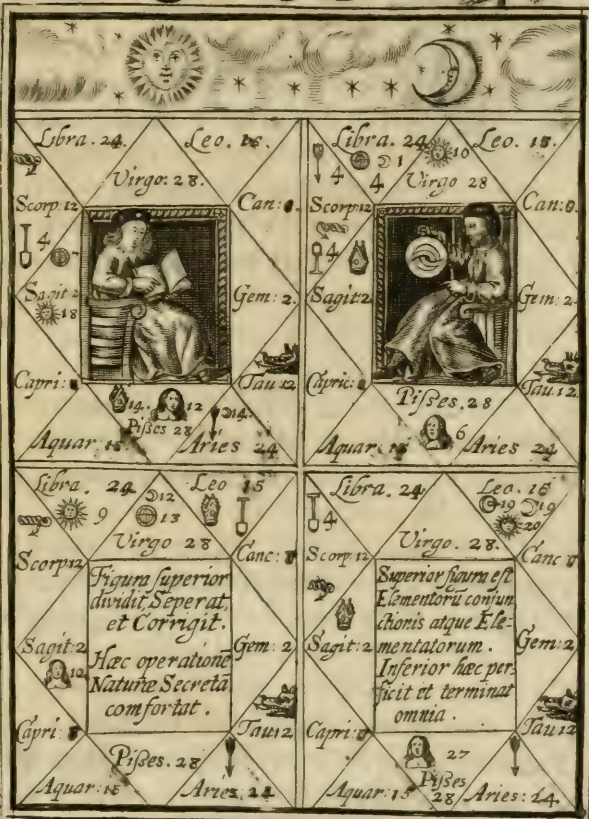 Libra. 24. Leo. 15.
Virgo. 28.
Scorp: 12 Can: 8.
4
Sagit: 2 Gem: 2.
18
Capri: 8 Tau 12
14. 12 ☽14.
Pißes 28
Aquar: 15 Aries 24
Libra. 24 Leo. 15.
4 ☽1 10
4 Virgo 28
Scorp: 12 Can: 8.
4
Sagit: 2 Gem: 2.
Capric: 8 Tau. 12.
Pißes. 28
6
Aquar: 15 Aries 24
Libra. 24 Leo 15
9 ☽12
13
Virgo 28
Scorp: 12 Canc: 8
Figura superior
dividit, Seperat,
et Corrigit.
Hæc operationē
Naturæ Secretā
comfortat.
Sagit: 2 Gem: 2
12
Capri: 8 Tau 12
Pißes. 28
Aquar: 15 Aries: 24
Libra. 24 Leo. 15
4 19 ☽19
20
Virgo. 28.
Scorp: 12 Canc 8
Superior figura est
Elementorū conjun
ctionis atque Ele-
mentatorum.
Inferior hæc per-
ficit et terminat
omnia.
Sagit: 2 Gem: 2
Capri: 8 Tau 12
27
Pißes
Aquar: 15 28 Aries: 24.